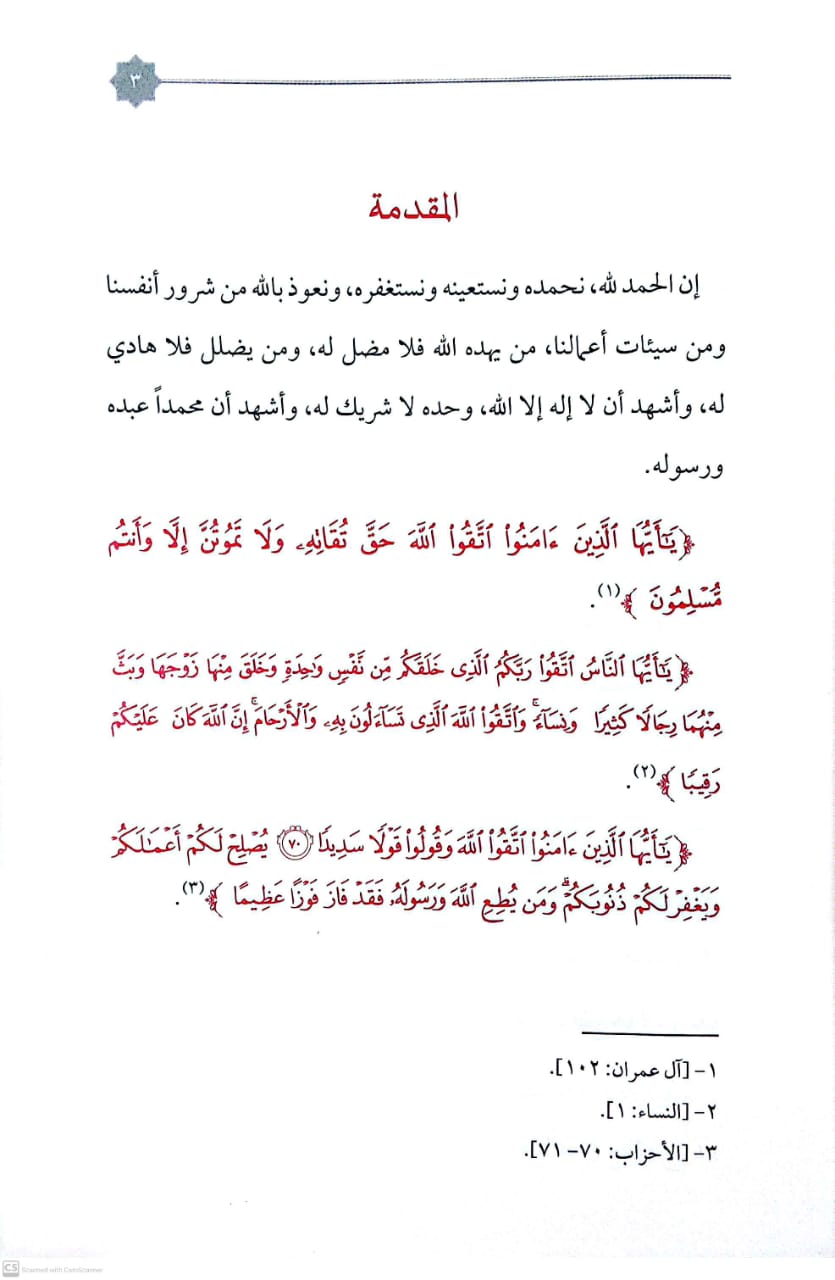 ٣
المقدمة
إن الحمد لله، نحمده ونستعينه ونستغفره، ونعوذ بالله من شرور أنفسنا
ومن سيئات أعمالنا، من يهده الله فلا مضل له، ومن يضلل فلا هادي
له، وأشهد أن لا إله إلا الله، وحده لا شريك له، وأشهد أن محمداً عبده
ورسوله.
﴿يَٰٓأَيُّهَا ٱلَّذِينَ ءَامَنُوا۟ ٱتَّقُوا۟ ٱللَّهَ حَقَّ تُقَاتِهِۦ وَلَا تَمُوتُنَّ إِلَّا وَأَنتُم
مُّسْلِمُونَ ﴾(١).
﴿يَٰٓأَيُّهَا ٱلنَّاسُ ٱتَّقُوا۟ رَبَّكُمُ ٱلَّذِى خَلَقَكُم مِّن نَّفْسٍ وَٰحِدَةٍ وَخَلَقَ مِنْهَا زَوْجَهَا وَبَثَّ
مِنْهُمَا رِجَالًا كَثِيرًا وَنِسَآءً ۚ وَٱتَّقُوا۟ ٱللَّهَ ٱلَّذِى تَسَآءَلُونَ بِهِۦ وَٱلْأَرْحَامَ ۚ إِنَّ ٱللَّهَ كَانَ عَلَيْكُمْ
رَقِيبًا ﴾(٢).
﴿يَٰٓأَيُّهَا ٱلَّذِينَ ءَامَنُوا۟ ٱتَّقُوا۟ ٱللَّهَ وَقُولُوا۟ قَوْلًا سَدِيدًا ٧٠ يُصْلِحْ لَكُمْ أَعْمَٰلَكُمْ
وَيَغْفِرْ لَكُمْ ذُنُوبَكُمْ ۗ وَمَن يُطِعِ ٱللَّهَ وَرَسُولَهُۥ فَقَدْ فَازَ فَوْزًا عَظِيمًا ﴾(٣).
١- [آل عمران: ١٠٢].
٢- [النساء: ١].
٣- [الأحزاب: ٧٠- ٧١].
CS Scanned with CamScanner